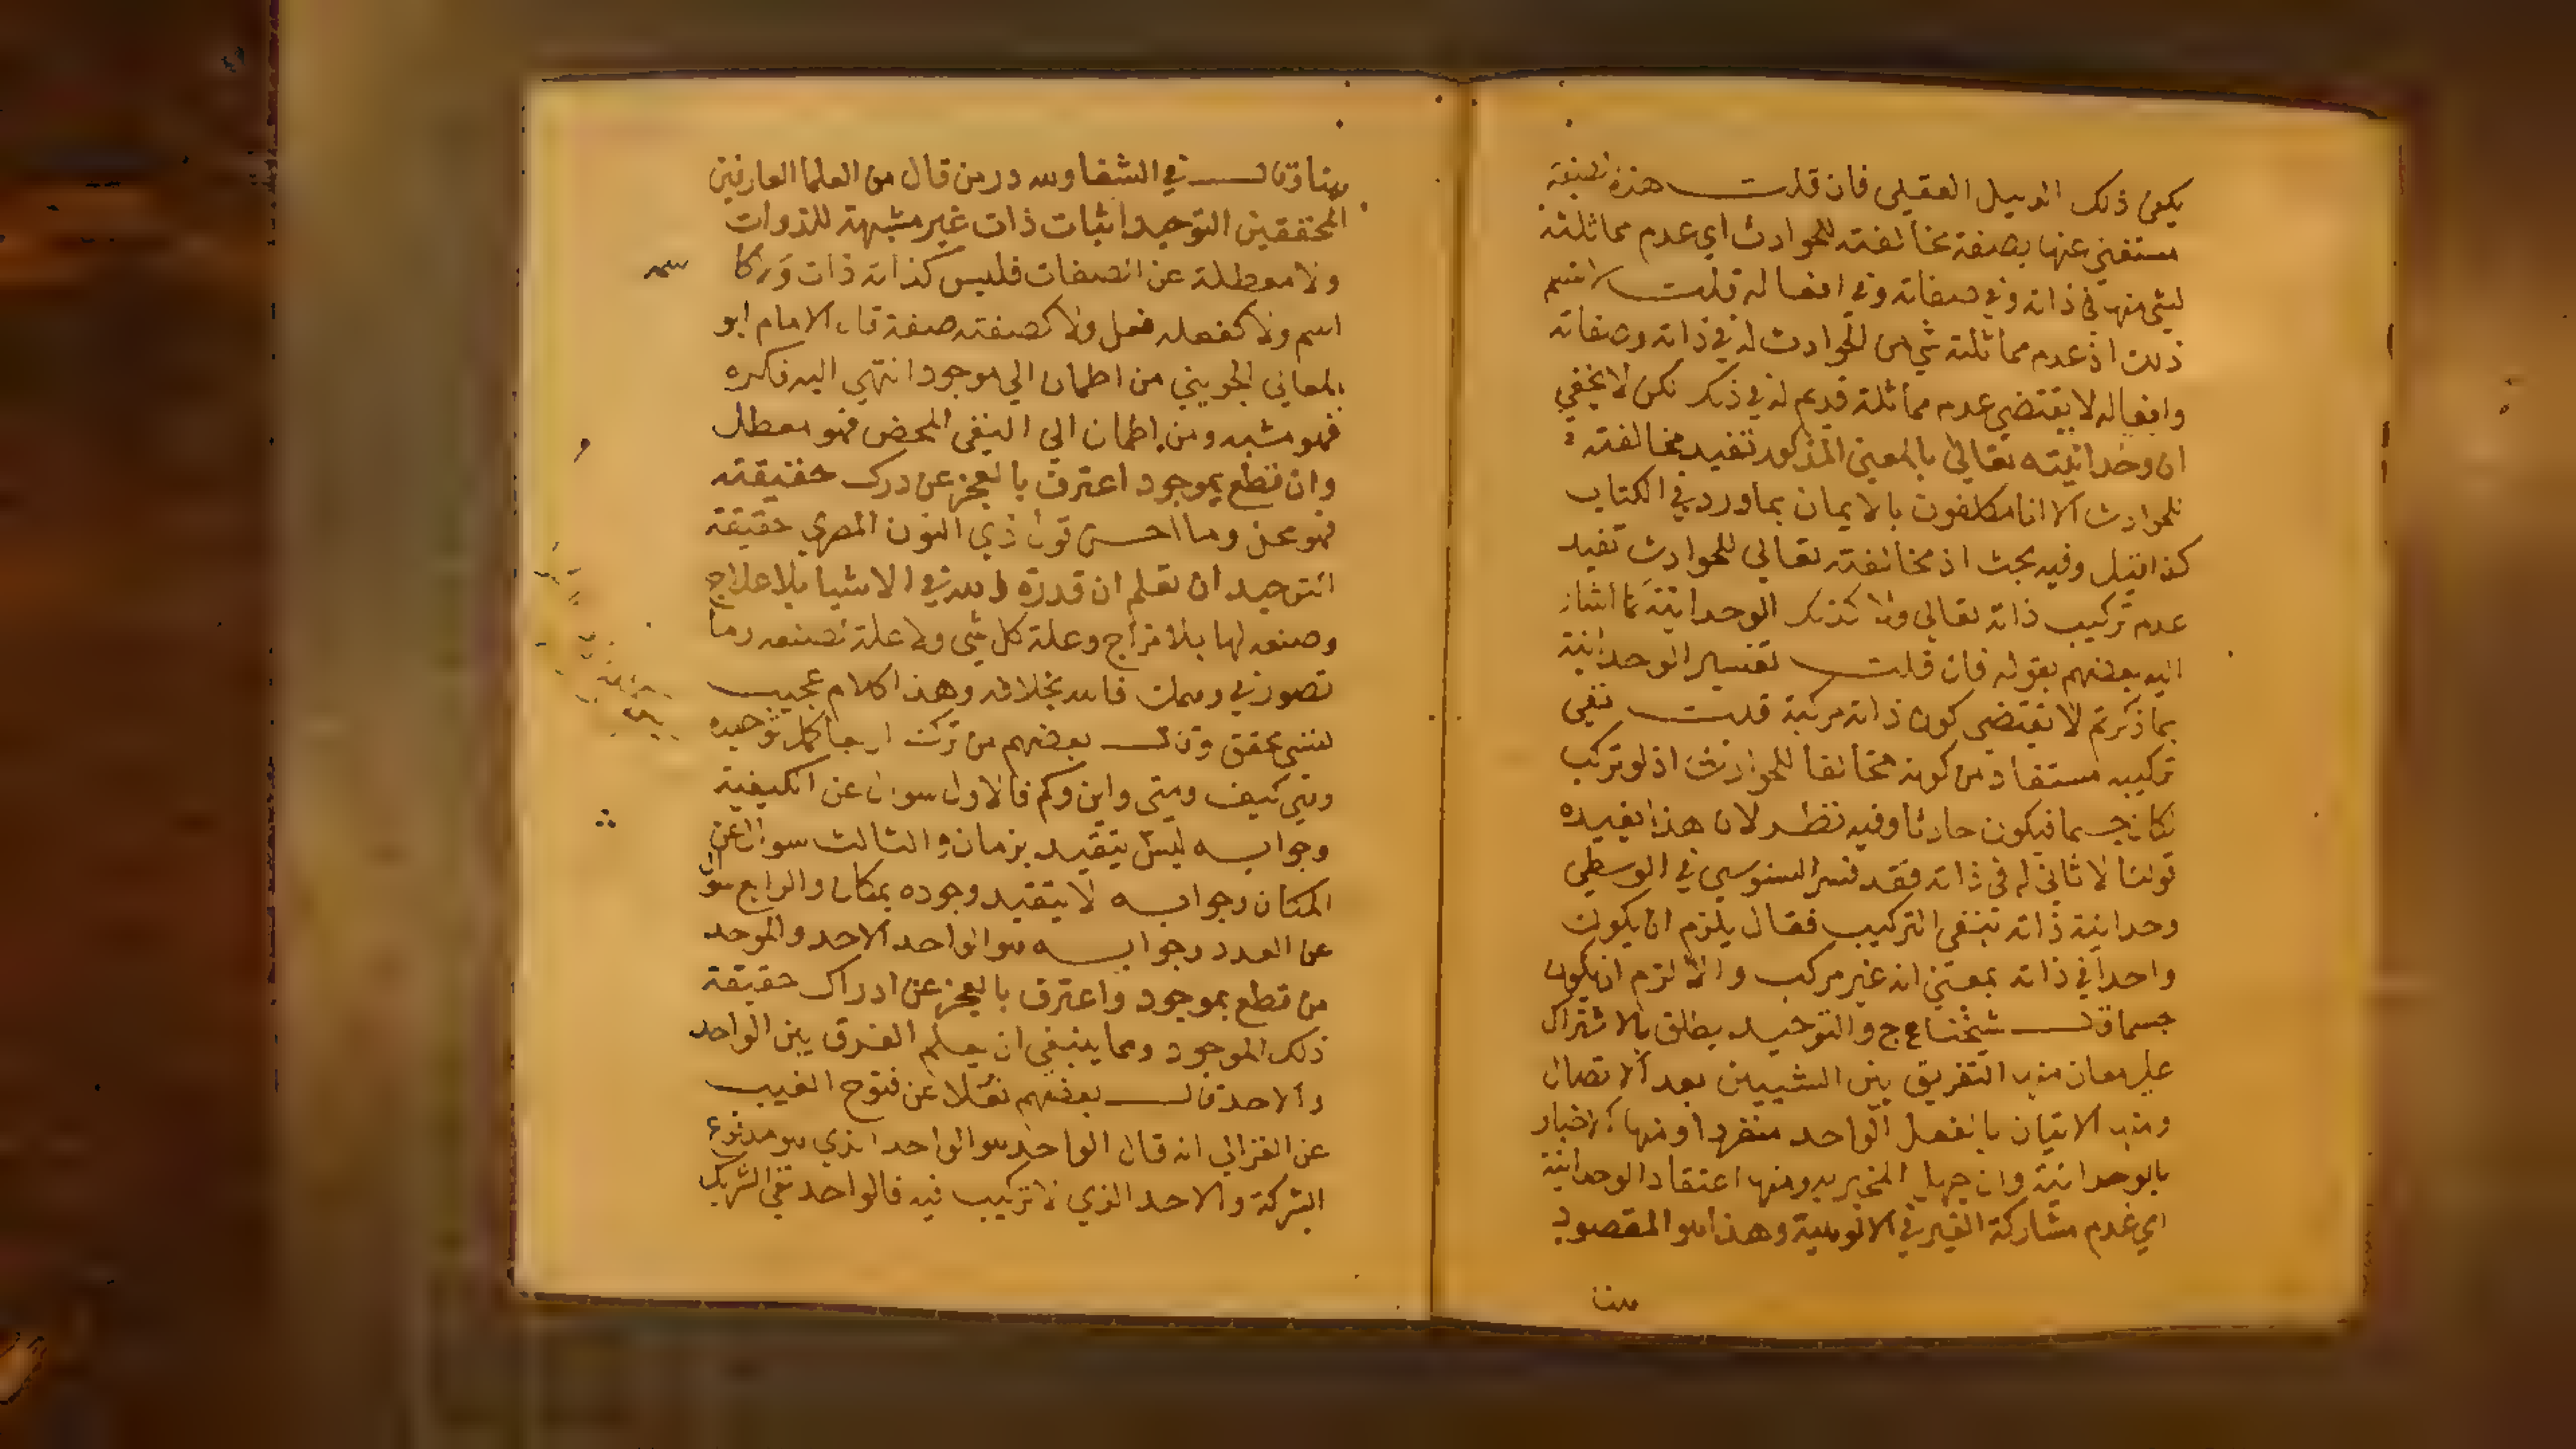 يكفي ذلك الدليل العقلي فان قلت هذه الصفة
مستغني عنها بصفة مخالفته للحوادث اي عدم مماثلته
لشي منها في ذاته وفي صفاته وفي افعاله قلت لا نسلم
ذلك اذ عدم مماثلة شي من الحوادث له في ذاته وصفاته
وافعاله لا يقتضي عدم مماثلة قديم له في ذلك لكن لا يخفي
ان وحدانيته تعالي بالمعني المذكور تفيد مخالفته
للحوادث الا انا مكلفون بالايمان بما ورد في الكتاب
كذا قيل وفيه بحث اذ مخالفته تعالي للحوادث تفيد
عدم تركيب ذاته تعالي ولا كذلك الوحدانية كما اشار
اليه بعضهم بقوله فان قلت تفسير الوحدانية
بما ذكرتم لا يقتضي كون ذاته مركبة قلت نفي
تركيبه مستفاد من كونه مخالفا للحوادث اذ لو تركب
لكان جسما فيكون حادثا وفيه نظر لان هذا يفيده
قولنا لا ثاني له في ذاته فقد فسر السنوسي في الوسطي
وحدانية ذاته بنفي التركيب فقال يلزم ان يكون
واحدا في ذاته بمعني انه غير مركب والا لزم ان يكون
جسما قال شيخنا ع ج والتوحيد يطلق بالاشتراك
علي معان منها التفريق بين الشيين بعد الاتصال
ومنها الاتيان بالفعل الواحد منفردا ومنها الاخبار
بالوحدانية وان جهل المخبر به ومنها اعتقاد الوحدانية
اي عدم مشاركة الغير في الالوهية وهذا هو المقصود
هنا
هنا وقال في الشفا ولله در من قال من العلما العارفين
المحققين التوحيد اثبات ذات غير مشبهة للذوات
ولا معطلة عن الصفات فليس كذاته ذات ولا كا
سمه
اسم ولا كفعله فعل ولا كصفته صفة قال الامام ابو
المعالي الجويني من اطمان الي موجود انتهي اليه فكره
فهو مشبه ومن اطمان الي النفي المحض فهو معطل
وان قطع بموجود اعترف بالعجز عن درك حقيقته
فهو وما احسن قول ذي النون المصري حقيقة
التوحيد ان تعلم ان قدرة الله في الاشيا بلا علاج
وصنعه لها بلا مزاج وعلة كل شي ولا علة لصنعه وما
تصور في وهمك فالله بخلافه وهذا كلام عجيب
نفيس محقق وقال بعضهم من ترك اربعا كمل توحيده
وهي كيف ومتي واين وكم فالاول سوال عن الكيفية
وجوابه ليس يتقيد بزمان والثالث سوال عن
المكان وجوابه لا يتقيد وجوده بمكان والرابع سوال
عن العدد وجوابه هو الواحد الاحد والموحد
من قطع بموجود واعترف بالعجز عن ادراك حقيقة
ذلك الموجود ومما ينبغي ان يعلم الفرق بين الواحد
والاحد قال بعضهم نقلا عن فتوح الغيب
عن الغزالي انه قال الواحد هو الواحد الذي هو مدفوع
الشركة والاحد الذي لا تركيب فيه فالواحد نفي الشريك